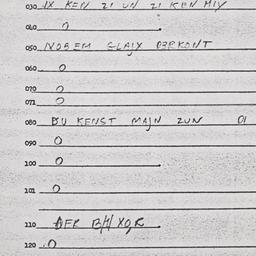 030 IX KEN ZI UN ZI KEN MIX
040 0
050 NOREM GLAJX BERKONT
060 0
070 0
071 0
080 DU KENST MAJN ZUN DI
090 0
100 0
101 0
110 DER BAXQR
120 0